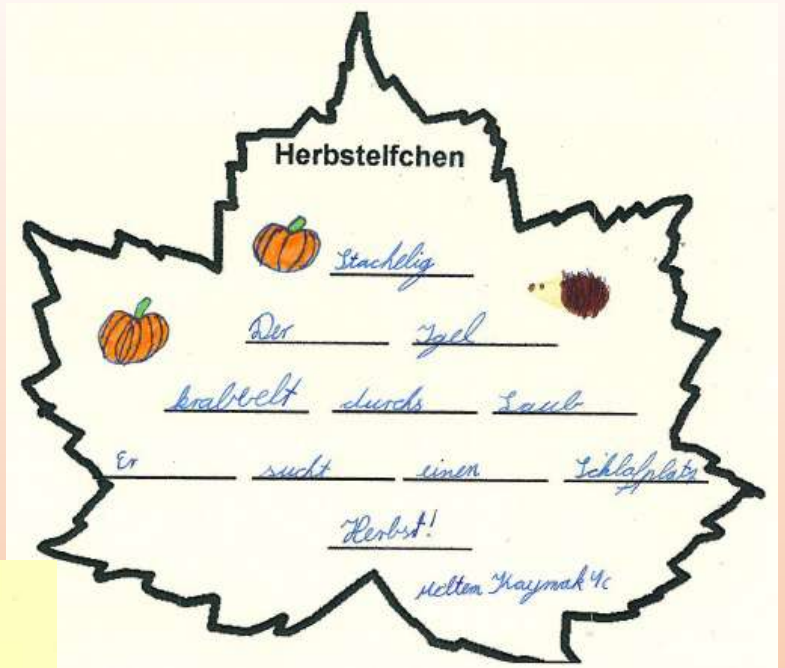 Herbstelfchen
Stachelig
Der Igel
krabbelt durchs Laub
Er sucht einen Schlafplatz
Herbst!
Meltem Kaymak 4c